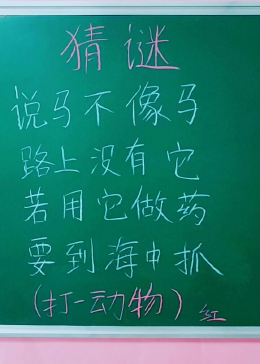 猜谜
说马不像马
路上没有它
若用它做药
要到海中抓
(打一动物)
红